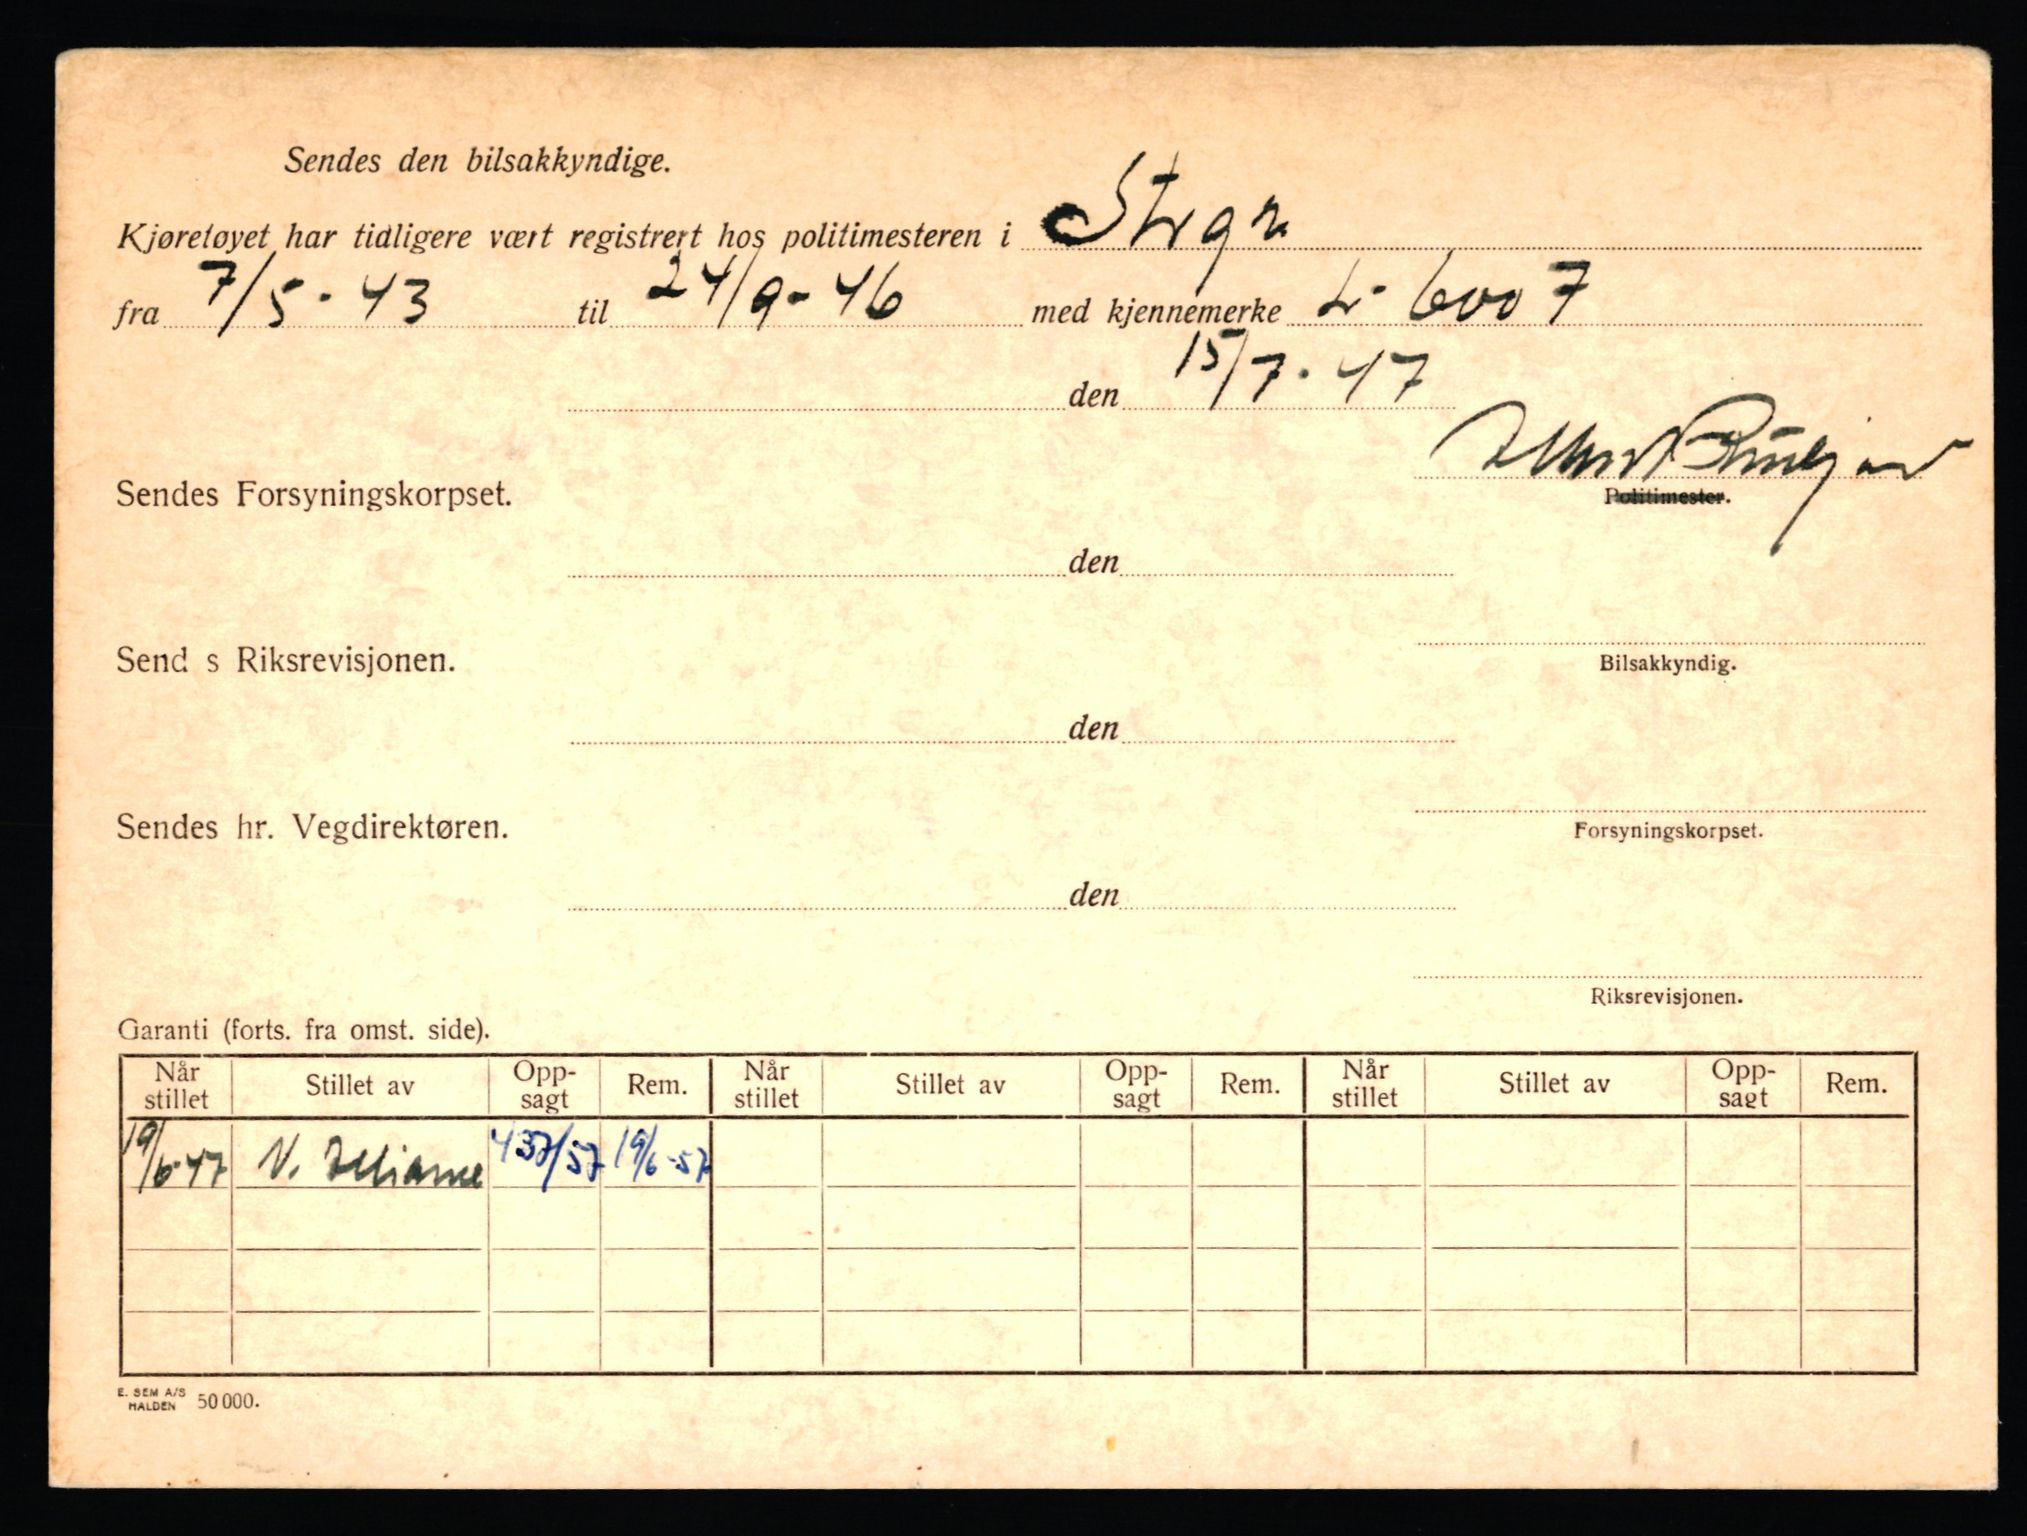 Sendes den bilsakkyndige.
Kjøretøyet har tidligere vært registrert hos politimesteren i Stvgr.
fra 7/5-43 til 24/9-46 med kjennemerke L-6007
den 15/7-47
Sendes Forsyningskorpset.
Politimester.
den
Send s Riksrevisjonen.
Bilsakkyndig.
den
Sendes hr. Vegdirektøren.
Forsyningskorpset.
den
Riksrevisjonen.
Garanti (forts. fra omst. side).
Når stillet Stillet av Opp-sagt Rem. Når stillet Stillet av Opp-sagt Rem. Når stillet Stillet av Opp-sagt Rem.
19/6-47 N. 437/57 19/6-57
E. SEM A/S
HALDEN 50 000.